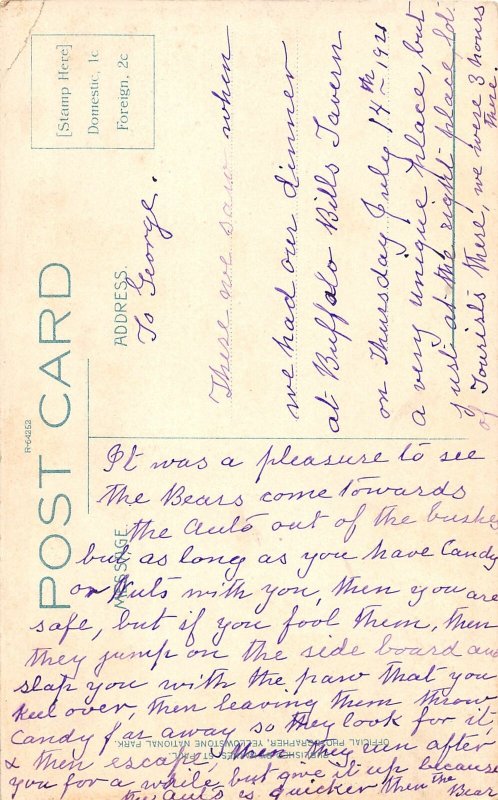 POST CARD
R-64252
[Stamp Here]
Domestic, 1c
Foreign, 2c
ADDRESS
MESSAGE
To George.
These we saw when
we had our dinner
at Buffalo Bills Tavern
on Thursday July 14th 1921
a very unique place, but
just at the right place lot
of Tourists there, we were 3 hours
there.
It was a pleasure to see
the Bears come towards
the Auto out of the bushes
but as long as you have Candy
or Nuts with you, then you are
safe, but if you fool them, then
they jump on the side board and
slap you with the paw that you
keel over, then leaving them throw
Candy far away so they look for it,
& then escape, then they run after
you for a while but give it up because
the Auto is quicker then the Bear
OFFICIAL PHOTOGRAPHER, YELLOWSTONE NATIONAL PARK